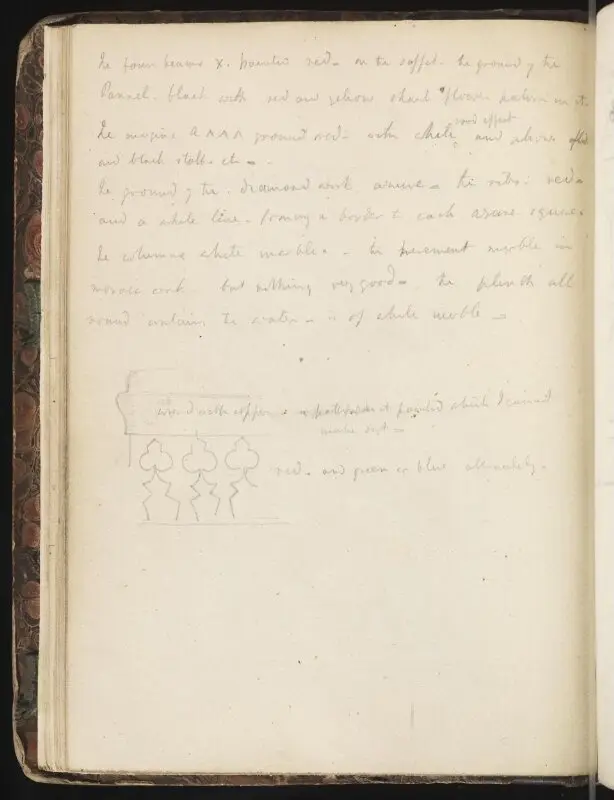 The four beams x. painted red - on the soffit. the ground of the
Pannel. black with red and yellow flower pattern in it.
The margins A A A A ground red - with white, and
good effect
and black
The ground of the diamond work - the ribs - red -
and a white line - forming a border to each square
The columns white marble - the pavement marble in
mosaic work - but nothing very good - the plinth all
round contains the water - is of white marble -
wood with copper painted which I cannot
make out -
red - and green or blue alternately -